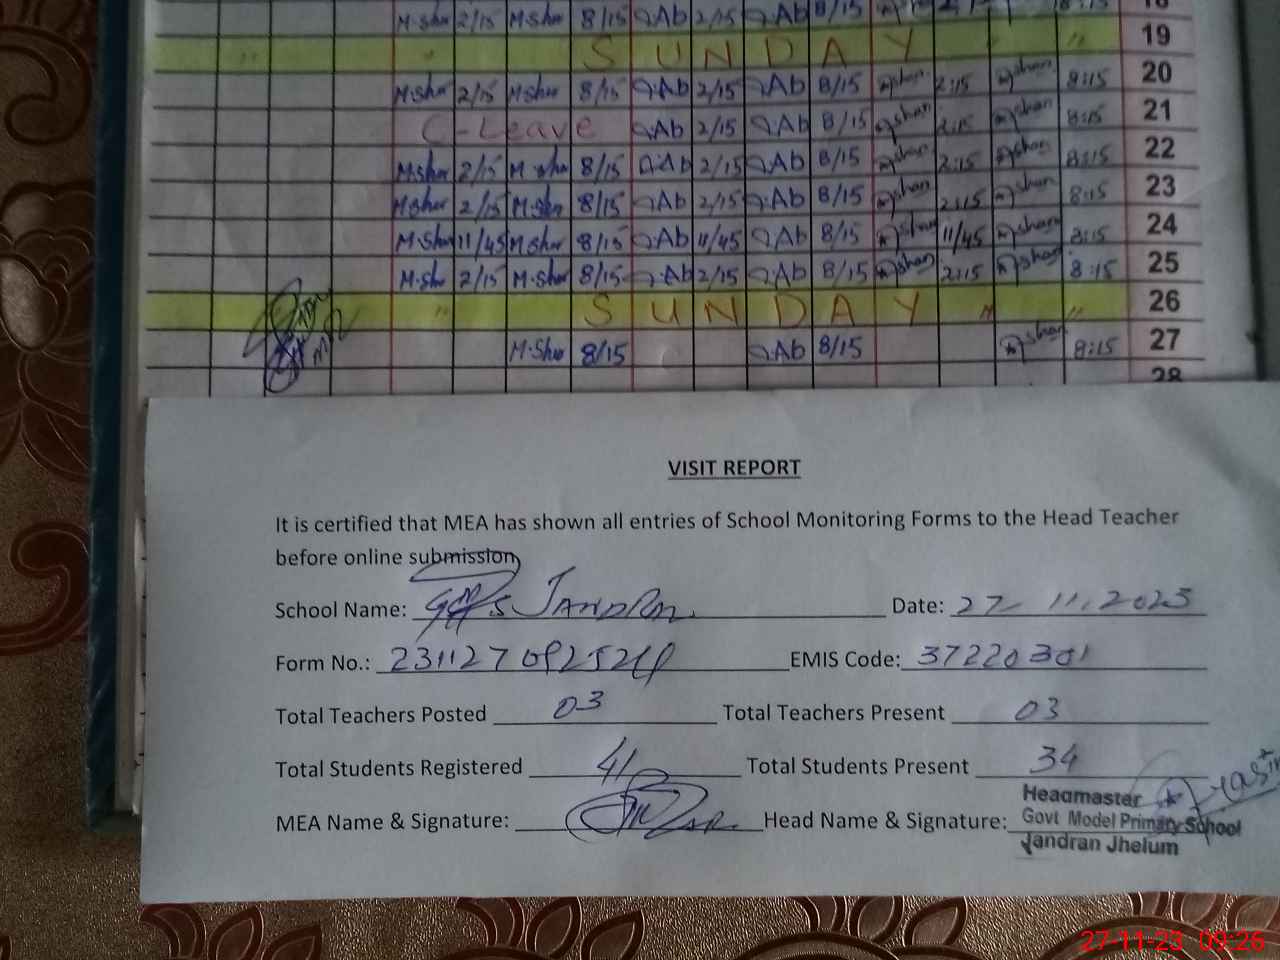 M.Shr 2/15 M.Shr 8/15 Ab 2/15 Ab 8/15 18
" " S U N D A Y " " 19
M.Shr 2/15 M.Shr 8/15 Ab 2/15 Ab 8/15 shan 2:15 shan 8:15 20
C-Leave Ab 2/15 Ab 8/15 shan 2:15 shan 8:15 21
M.Shr 2/15 M.Shr 8/15 Ab 2/15 Ab 8/15 shan 2:15 shan 8:15 22
M.Shr 2/15 M.Shr 8/15 Ab 2/15 Ab 8/15 shan 2:15 shan 8:15 23
M.Shr 11/45 M.Shr 8/15 Ab 11/45 Ab 8/15 shan 11/45 shan 8:15 24
M.Shr 2/15 M.Shr 8/15 Ab 2/15 Ab 8/15 shan 2:15 shan 8:15 25
" S U N D A Y " " 26
M.Shr 8/15 Ab 8/15 shan 8:15 27
28
VISIT REPORT
It is certified that MEA has shown all entries of School Monitoring Forms to the Head Teacher
before online submission
School Name: JANDRAN Date: 27-11.2023
Form No.: EMIS Code: 37220301
Total Teachers Posted 03 Total Teachers Present 03
Total Students Registered 41 Total Students Present 34
MEA Name & Signature: Head Name & Signature:
Headmaster
Govt Model Primary School
Jandran Jhelum
27-11-23 09:26